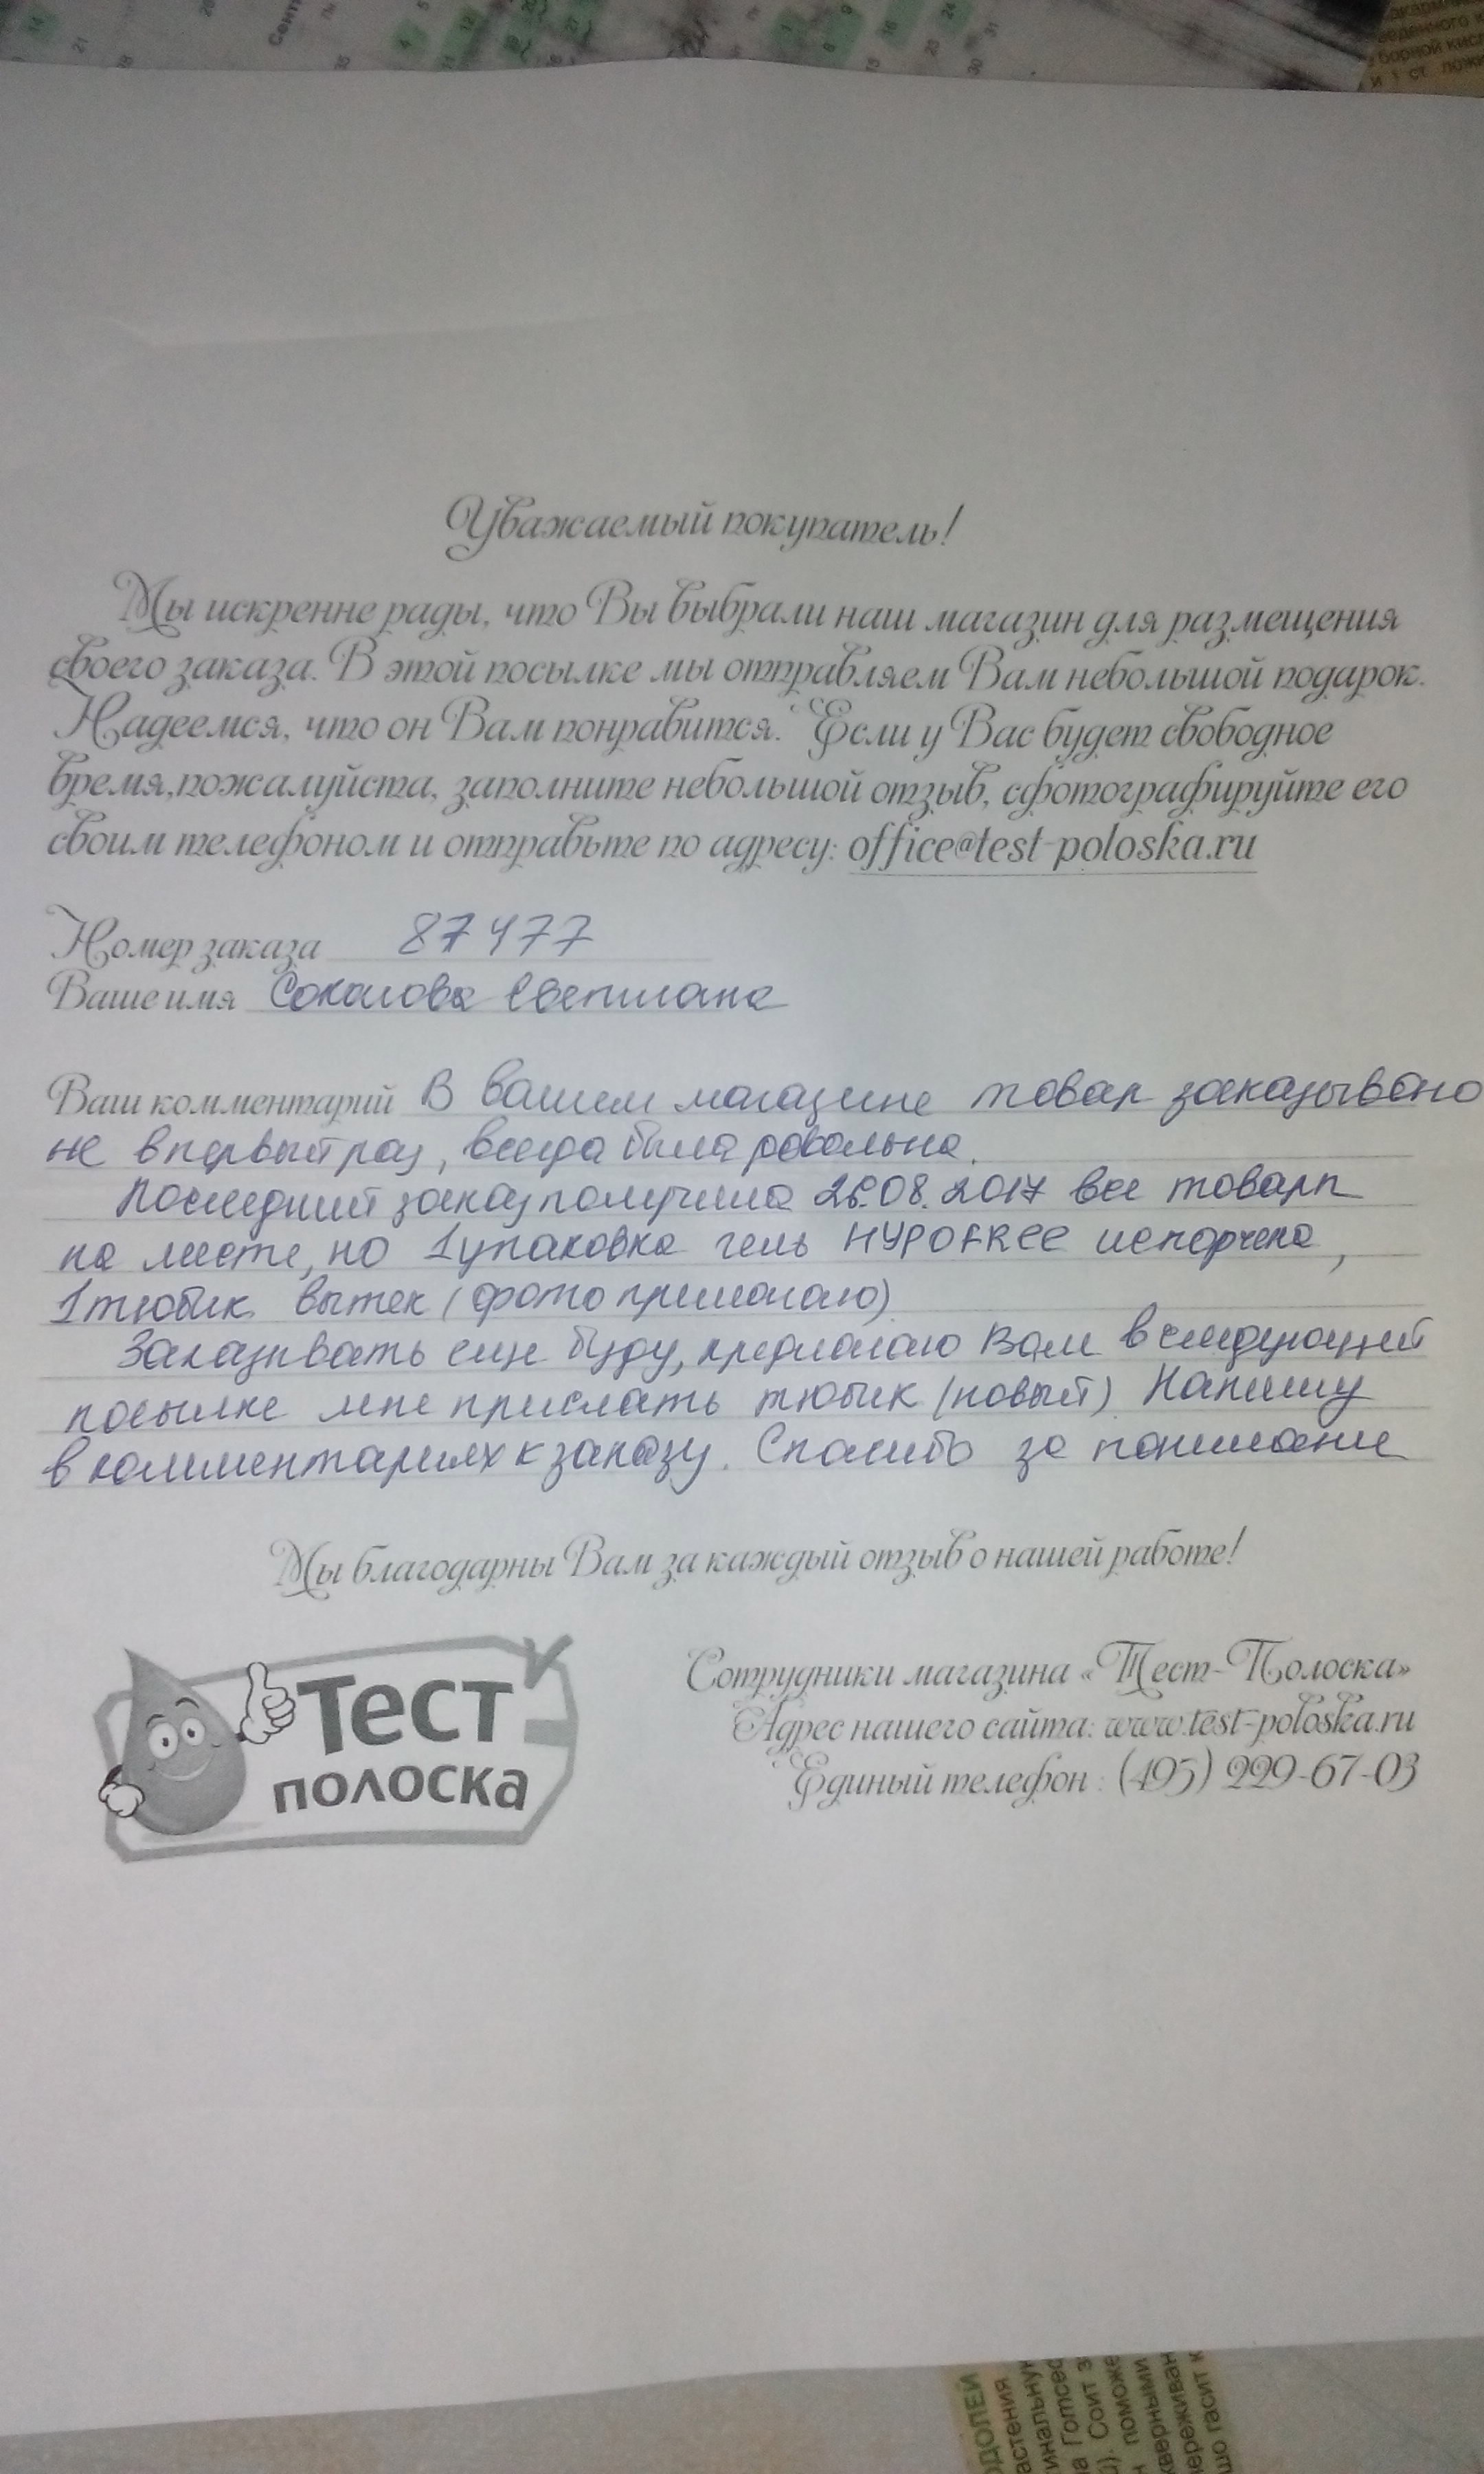 Уважаемый покупатель!
Мы искренне рады, что Вы выбрали наш магазин для размещения
своего заказа. В этой посылке мы отправляем Вам небольшой подарок.
Надеемся, что он Вам понравится. Если у Вас будет свободное
время,пожалуйста, заполните небольшой отзыв, сфотографируйте его
своим телефоном и отправьте по адресу: office@test-poloska.ru
Номер заказа 87477
Ваше имя Соколова Светлана
Ваш комментарий В вашем магазине товар заказываю
не впервый раз, всегда была довольна.
Последний заказ получила 26.08.2017 все товары
на месте, но 1 упаковка гель HYPOFREE испорчена,
1 тюбик вытек (фото прилагаю)
Заказывать еще буду, предлагаю Вам в следующей
посылке мне прислать тюбик (новый). Напишу
в комментариях к заказу. Спасибо за понимание
Мы благодарны Вам за каждый отзыв о нашей работе!
Тест
полоска
Сотрудники магазина «Тест-Полоска»
Адрес нашего сайта: www.test-poloska.ru
Единый телефон : (495) 229-67-03